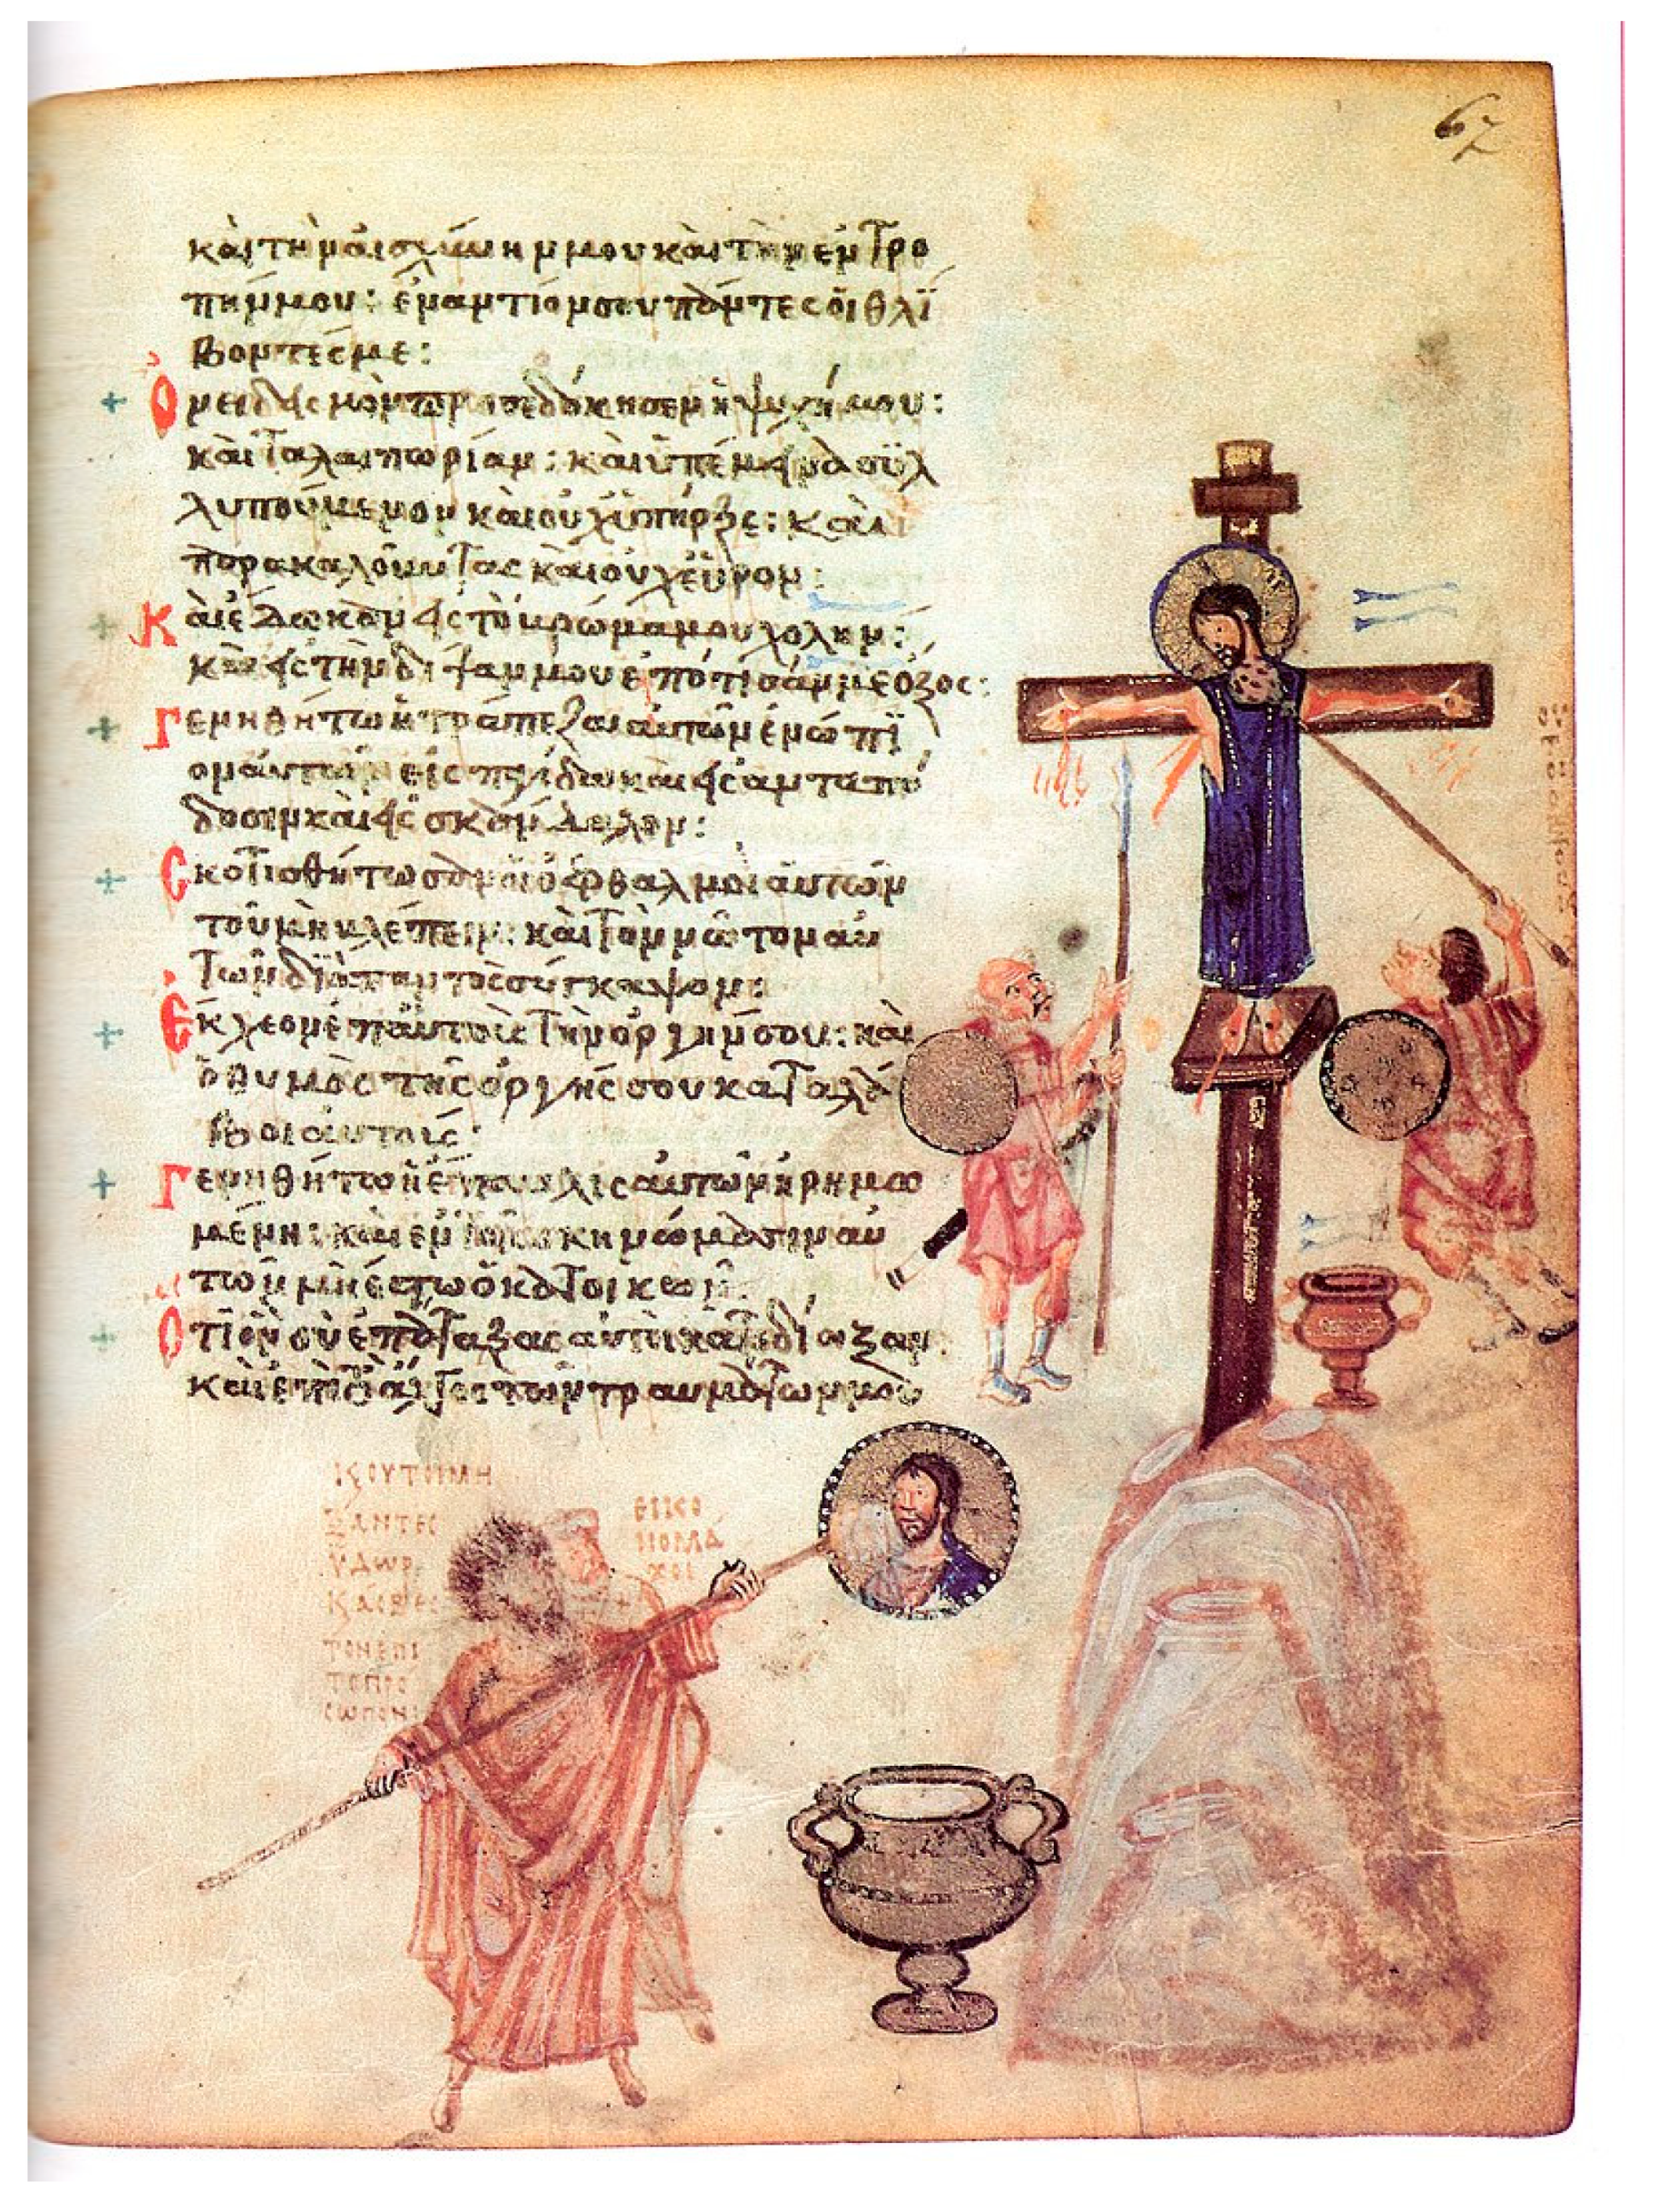 67
καὶ τὴν αἰσχύνην μου καὶ τὴν ἐντρο
πήν μου: ἐναντίον σου πάντες οἱ θλί
βοντές με:
Ὀνειδισμὸν προσεδόκησεν ἡ ψυχή μου:
καὶ ταλαιπωρίαν: καὶ ὑπέμεινα συλ
λυπούμενον καὶ οὐχ ὑπῆρξε: καὶ
παρακαλοῦντας καὶ οὐχ εὗρον:
Καὶ ἔδωκαν εἰς τὸ βρῶμά μου χολήν:
καὶ εἰς τὴν δίψαν μου ἐπότισάν με ὄξος:
Γενηθήτω ἡ τράπεζα αὐτῶν ἐνώπι
ον αὐτῶν εἰς παγίδα καὶ εἰς ἀνταπό
δοσιν καὶ εἰς σκάνδαλον:
Σκοτισθήτωσαν οἱ ὀφθαλμοὶ αὐτῶν
τοῦ μὴ βλέπειν: καὶ τὸν νῶτον αὐ
τῶν διὰ παντὸς σύγκαμψον:
Ἔκχεον ἐπ αὐτοὺς τὴν ὀργήν σου: καὶ
ὁ θυμὸς τῆς ὀργῆς σου καταλά
βοι αὐτούς:
Γενηθήτω ἡ ἔπαυλις αὐτῶν ἠρημω
μένη: καὶ ἐν τοῖς σκηνώμασιν αὐ
τῶν μὴ ἔστω ὁ κατοικῶν:
Ὅτι ὃν σὺ ἐπάταξας αὐτοὶ κατεδίωξαν
καὶ ἐπὶ τὸ ἄλγος τῶν τραυμάτων μου
Κ ΟΥΤΟΙ ΜΗ
ΞΑΝΤΕС
ΥΔΩΡ
Κ ΑСΒΕС
ΤΟΝ ΕΠΙ
ΤΟ ΠΡΟ
СΩΠΟΝ
ΕΙΚΟ
ΝΟΜΑ
ΧΟΙ